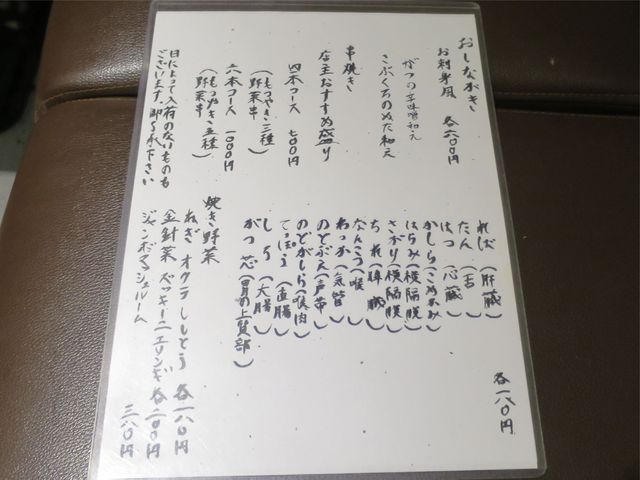 おしながき
お刺身風 各六〇〇円
がつの辛味噌和え
こぶくろのぬた和え
串焼き
店主おすすめ盛り
四本コース 七〇〇円
(もつやき三種
野菜串)
六本コース 一〇〇〇円
(もつやき五種
野菜串)
日によって入荷のないものも
ございます。御了承下さい
れば(肝臓)
たん(舌)
はつ(心臓)
かしら(こめかみ)
はらみ(横隔膜)
さがり(横隔膜)
ちれ(脾臓)
なんこつ(喉)
わっか(気管)
のどぶえ(声帯)
のどがしら(喉肉)
てっぽう(直腸)
しろ(大腸)
がつ芯(胃の上質部)
各一八〇円
焼き野菜
ねぎ オクラ ししとう 各一八〇円
金針菜 ズッキーニ エリンギ 各二〇〇円
ジャンボマッシュルーム 三八〇円